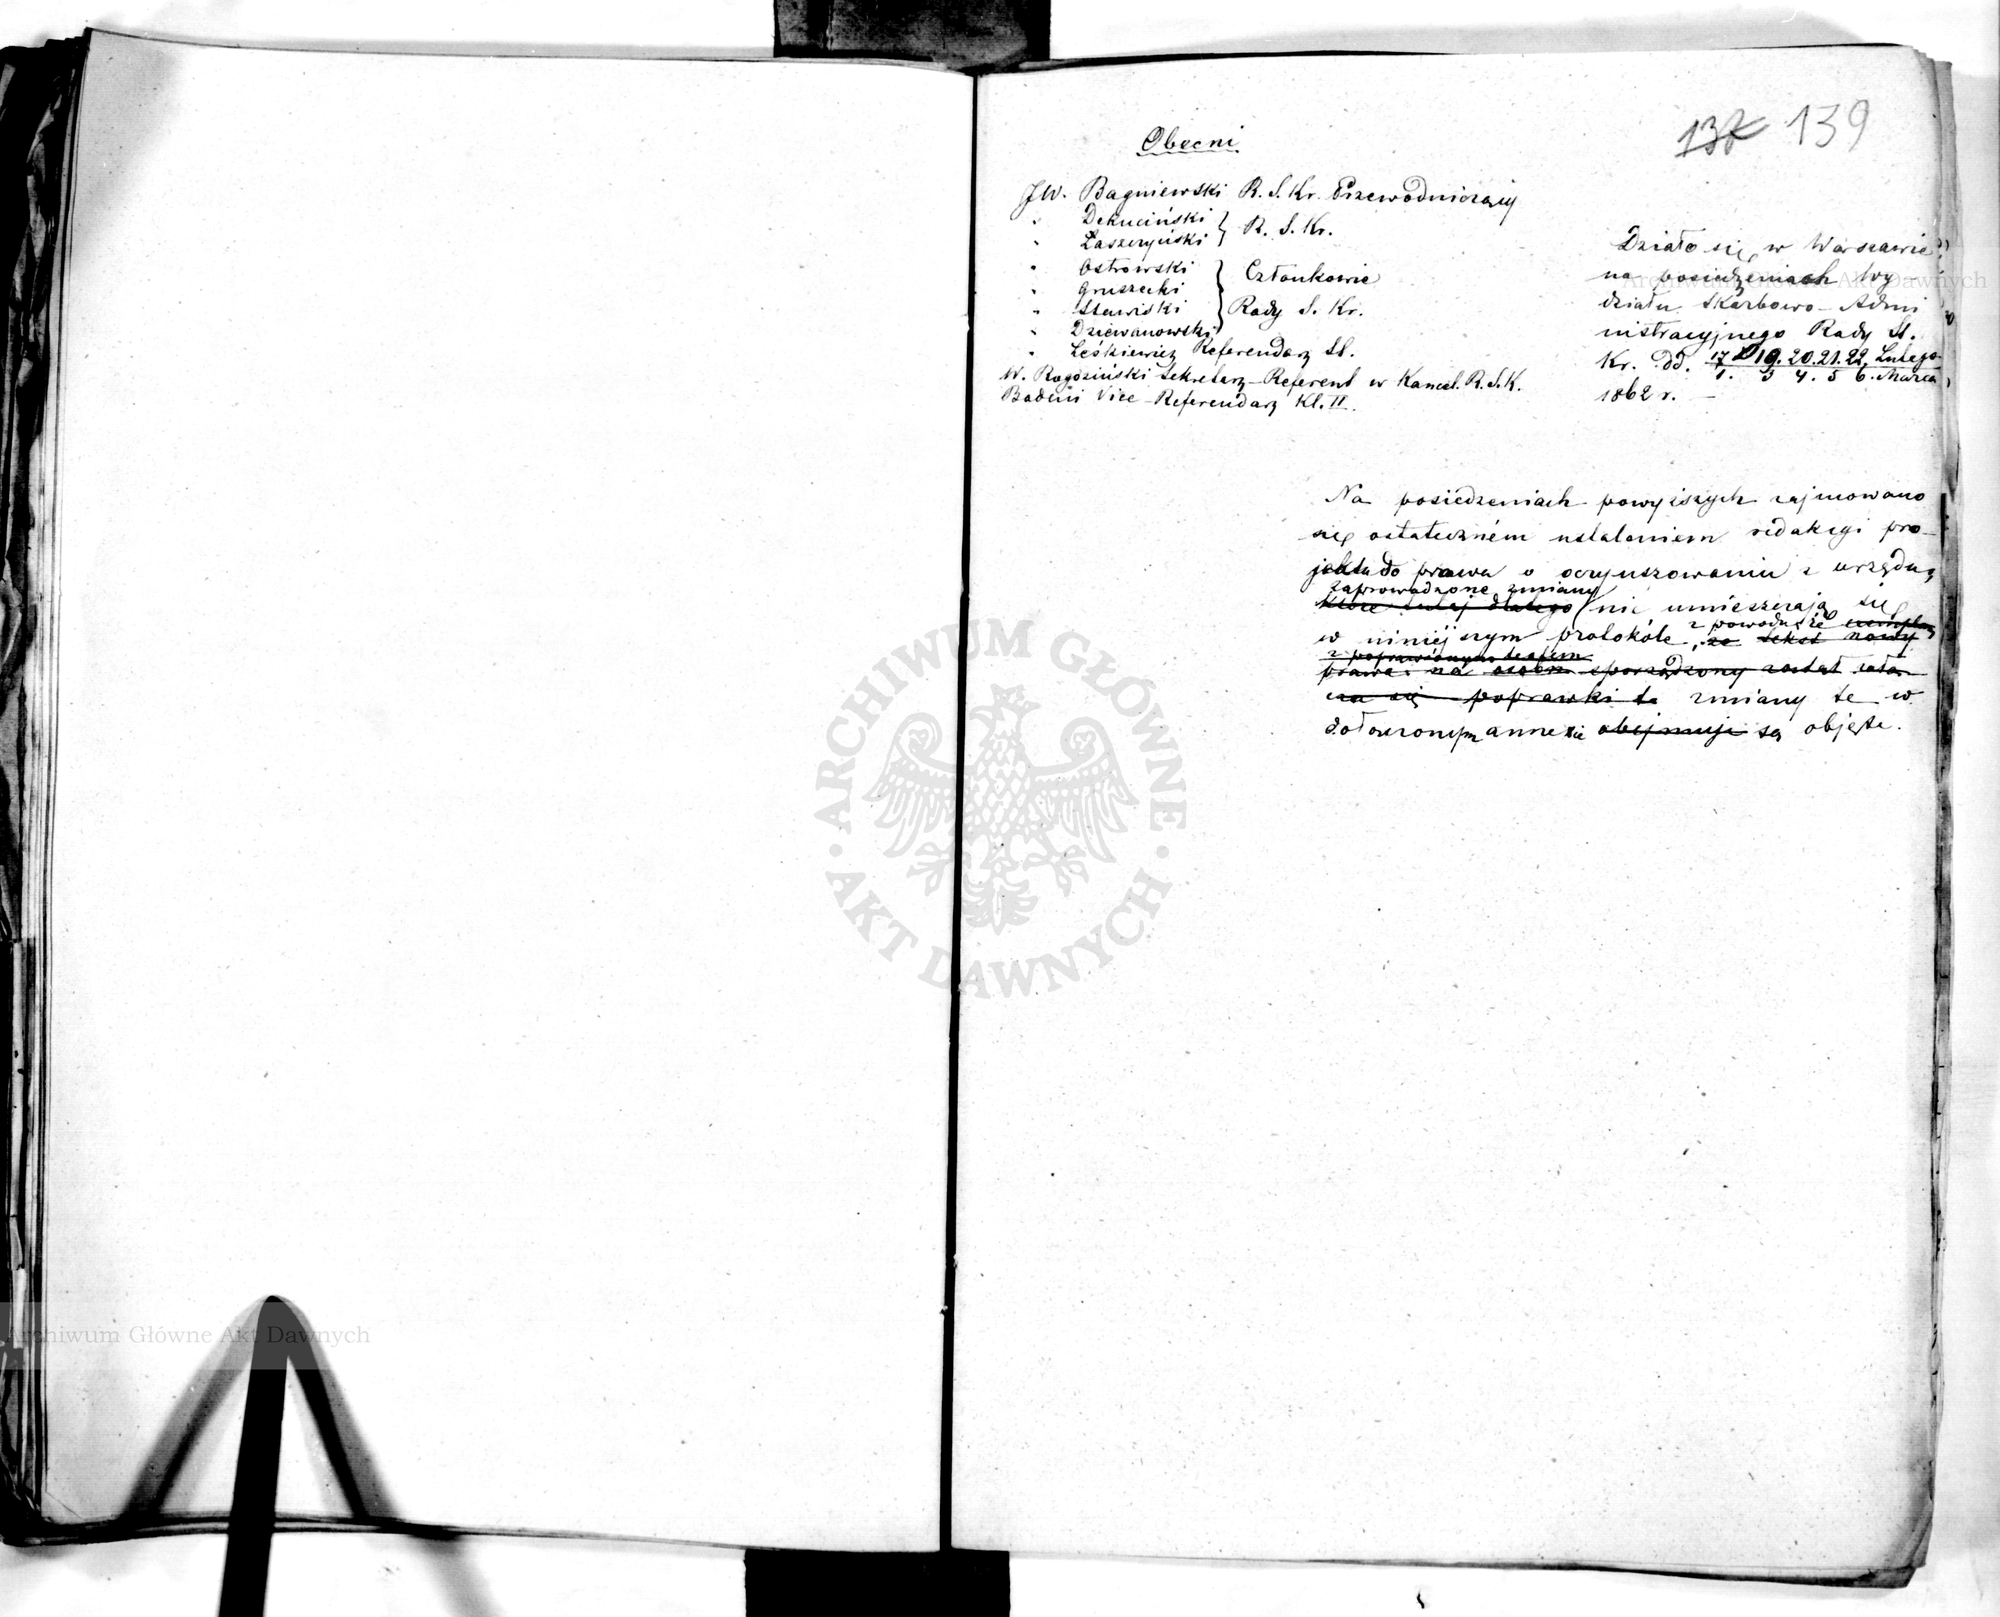 137 139
Obecni
JW. Bagniewski R. S. Kr. Przewodniczący
" Dekuciński } R. S. Kr.
" Łaszczyński
" Ostrowski } Członkowie
" Gruszecki
" Stawiski Rady S. Kr.
" Dziewanowski
" Leśkiewicz Referendarz St.
W. Rogoziński Sekretarz-Referent w Kancel. R. S. K.
Badeni Vice-Referendarz Kl. II.
Działo się w Warszawie
na posiedzeniach Wy-
działu Skarbowo-Admi
nistracyjnego Rady St.
Kr. dd. 17 19. 20. 21. 22. Lutego
1. 3 4. 5 6. Marca
1862 r. –
Na posiedzeniach powyższych zajmowano
się ostateczném ustaleniem redakcyi pro-
jektu do prawa o oczynszowaniu z urzędu,
zaprowadzone zmiany
które tutaj dlatego nie umieszczają się
z powodu że
w niniejszym protokóle, że tekst nowy
z poprawionym tekstem
prawa na sporządzony został
się poprawki te zmiany te w
dołączonym annexie obejmuje są objęte.
ARCHIWUM GŁÓWNE
· AKT DAWNYCH ·
Archiwum Główne Akt Dawnych
Archiwum Główne Akt Dawnych